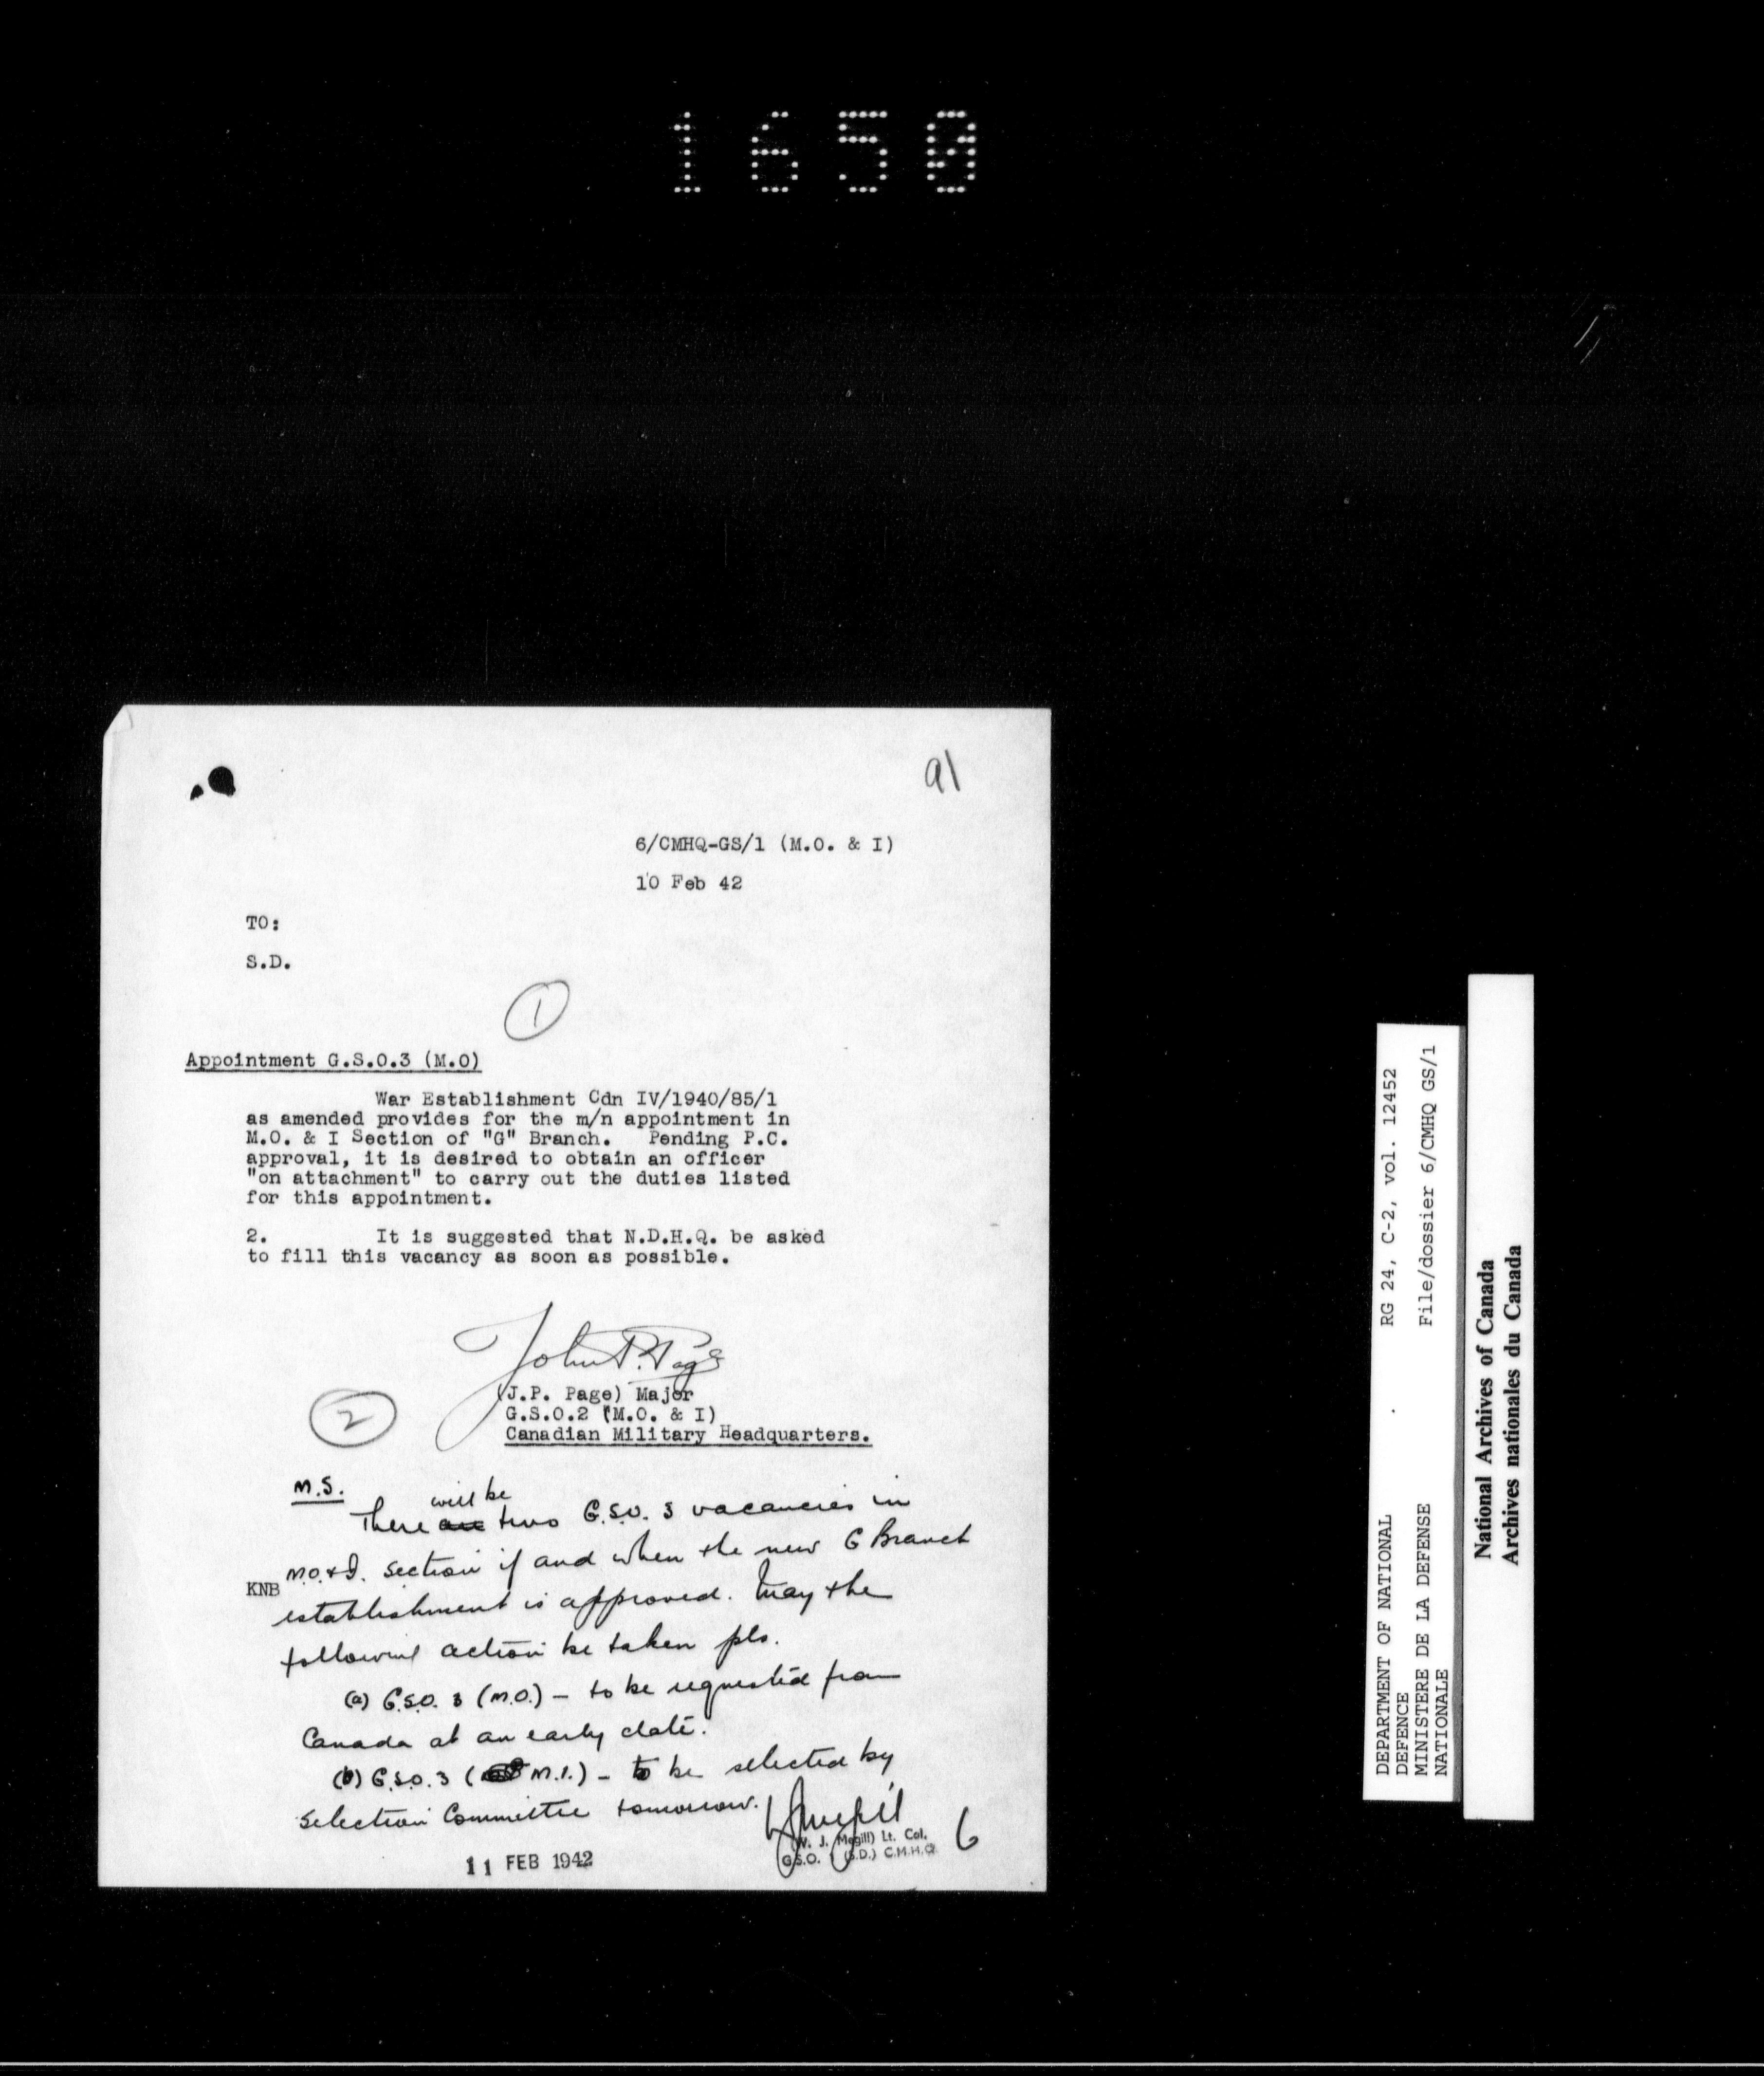 1650
91
6/CMHQ-GS/1 (M.O. & I)
10 Feb 42
TO:
S.D.
1
Appointment G.S.O.3 (M.O)
War Establishment Cdn IV/1940/85/1
as amended provides for the m/n appointment in
M.O. & I Section of "G" Branch. Pending P.C.
approval, it is desired to obtain an officer
"on attachment" to carry out the duties listed
for this appointment.
2. It is suggested that N.D.H.Q. be asked
to fill this vacancy as soon as possible.
John P. Page
(J.P. Page) Major
G.S.O.2 (M.O. & I)
Canadian Military Headquarters.
2
M.S.
will be
There are two G.S.O. 3 vacancies in
M.O. & I. Section if and when the new G Branch
KNB
establishment is approved. May the
following action be taken pls.
(a) G.S.O. 3 (M.O.) - to be requested from
Canada at an early date.
(b) G.S.O. 3 (M.I.) - to be selected by
Selection Committee tomorrow.
WJMegill
(W. J. Megill) Lt. Col.
G.S.O. 1 (S.D.) C.M.H.Q.
6
11 FEB 1942
DEPARTMENT OF NATIONAL DEFENCE
MINISTERE DE LA DEFENSE NATIONALE
RG 24, C-2, vol. 12452
File/dossier 6/CMHQ GS/1
National Archives of Canada
Archives nationales du Canada